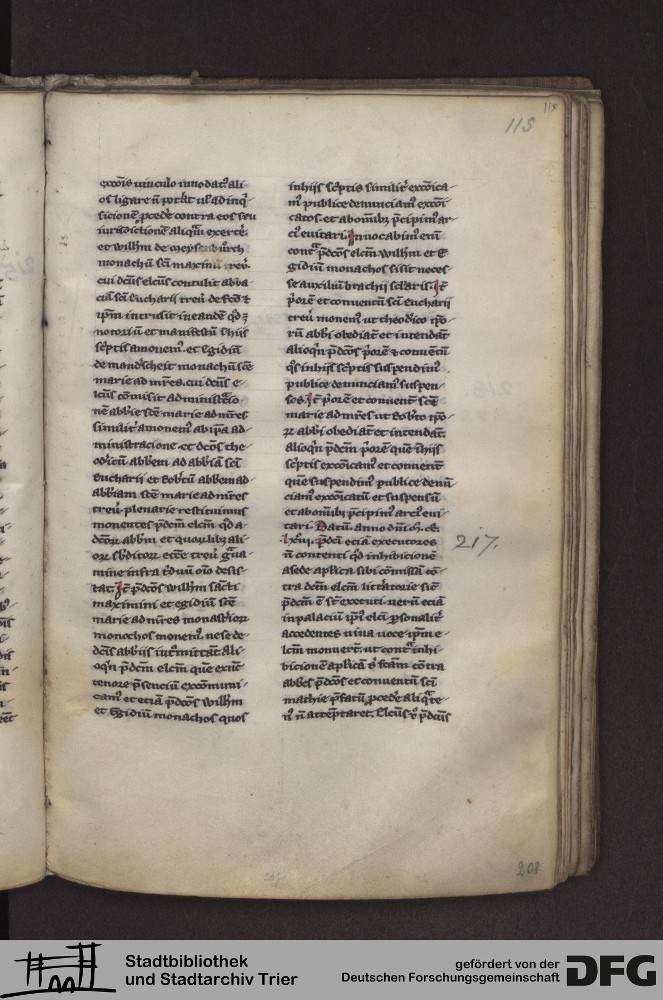 115
excōis uinculo innodatꝰ ali-
os ligare n̄ potͣit ul' ad inq̇-
sicionē ꝓcede᷒ contra eos seu
iurisdictionē aliqͣm exerce᷒.
et wilhm de meysenburch
monachū sc̄i maximi treu᷒.
cui dcūs elcūs contulit abba-
ciā sc̄i eucharii treu᷒ de fc̄o ⁊
ip̄m intrusit in eandē qd̓ ē
notoriū et manifestū hiis
sc̄ptis amouem᷒. et Egidiū
de mandscheit monachū sc̄e
marie ad mr̄es. cui dcūs e-
lcūs cōmisit administr̄io-
nē abb̄ie sc̄e marie ad mr̄es
similit᷒ amouemꝰ ab ip̄a ad-
ministracione et dc̄os the-
od᷒icū abb̄em ad abb̄iā sc̄i
eucharii et Rob̄tū abbem ad
abb̄iam sc̄e marie ad mr̄es
treu᷒ plenarie restituimus
monentes p̄dc̄m elcm̄ qd̓ a
dc̄oꝝ abb̄m et quoꝝlib᷒ ali-
oꝝ sb̓ditoꝝ ecc̄e treu᷒ gͣua-
mine infra t᷒duū oīo desis-
tat. Jt̄ p̄dc̄os wilhm sc̄i
maximini et egidiū sc̄e
marie ad mr̄es monast᷒ioꝝ
monachos monemꝰ. ne se de
dc̄is abb̄iis int᷒mittāt. ali-
oq̇n p̄dc̄m elcm̄ que ex nūc
tenore p̄senciū excōmuni-
camꝰ et eciā p̄dc̄os wilhm
et Egidiū monachos quos
in hiis sc̄ptis similit᷒ excōica-
mꝰ publice denunciamꝰ excōi-
catos. et ab omībꝫ p̄cipimꝰ ar-
ciꝰ euitari. Jnuocabimꝰ enī
contͣ p̄dc̄os elcm̄. wilhm et E-
gidiū monachos si sit neces-
se auxiliū brachii sc̄laris. Jt̄
p̄orē et conuentū sc̄i eucharii
treu᷒ monemꝰ ut theod᷒ico ip̄o-
rū abb̄i obediāt et intendāt
alioq̇n p̄dc̄os p̄orē ⁊ conuētū
q̊s in hiis sc̄ptis suspendimꝰ.
publice denunciamꝰ suspen-
sos. Jt̄ p̄orē et conuent̄ sc̄e
marie ad mr̄es ut Rob̄to ip̄o-
ꝝ abb̄i obediāt et intendāt
alioq̇n p̄dc̄m p̄orē quē hiis
sc̄ptis excōicamꝰ et conuent̄
quē suspendimꝰ publice denū-
ciamꝰ excōicatū et suspensū
et ab omībꝫ p̄cipimꝰ arciꝰ eui-
tari. Datū. anno dn̄i. m̊. cc̊.
lxvıı. p̄dc̄i eciā executores
n̄ contenti qd̓ inhibicionē
a sede aplica sibi cōmissā cō-
tra dcm̄ elcm̄ litt᷒atorie sic̄
p̄dcm̄ ē sūt executi. uerū eciā
in palaciū ip̄iꝰ elc̄i ꝑsonalit᷒
accedentes uiua uoce ip̄m e-
lcm̄ monuert̄. ut contͣ inhi-
bicionē aplicā ē fc̄am cōtra
abb̄es p̄dc̄os et conuentū sc̄i
mathie p̄fatū ꝓcede᷒ aliqͣte-
nꝰ n̄ attēptaret. Elcūs ꝟo p̄dcūs
217.
208
Stadtbibliothek
und Stadtarchiv Trier
gefördert von der
Deutschen Forschungsgemeinschaft
DFG